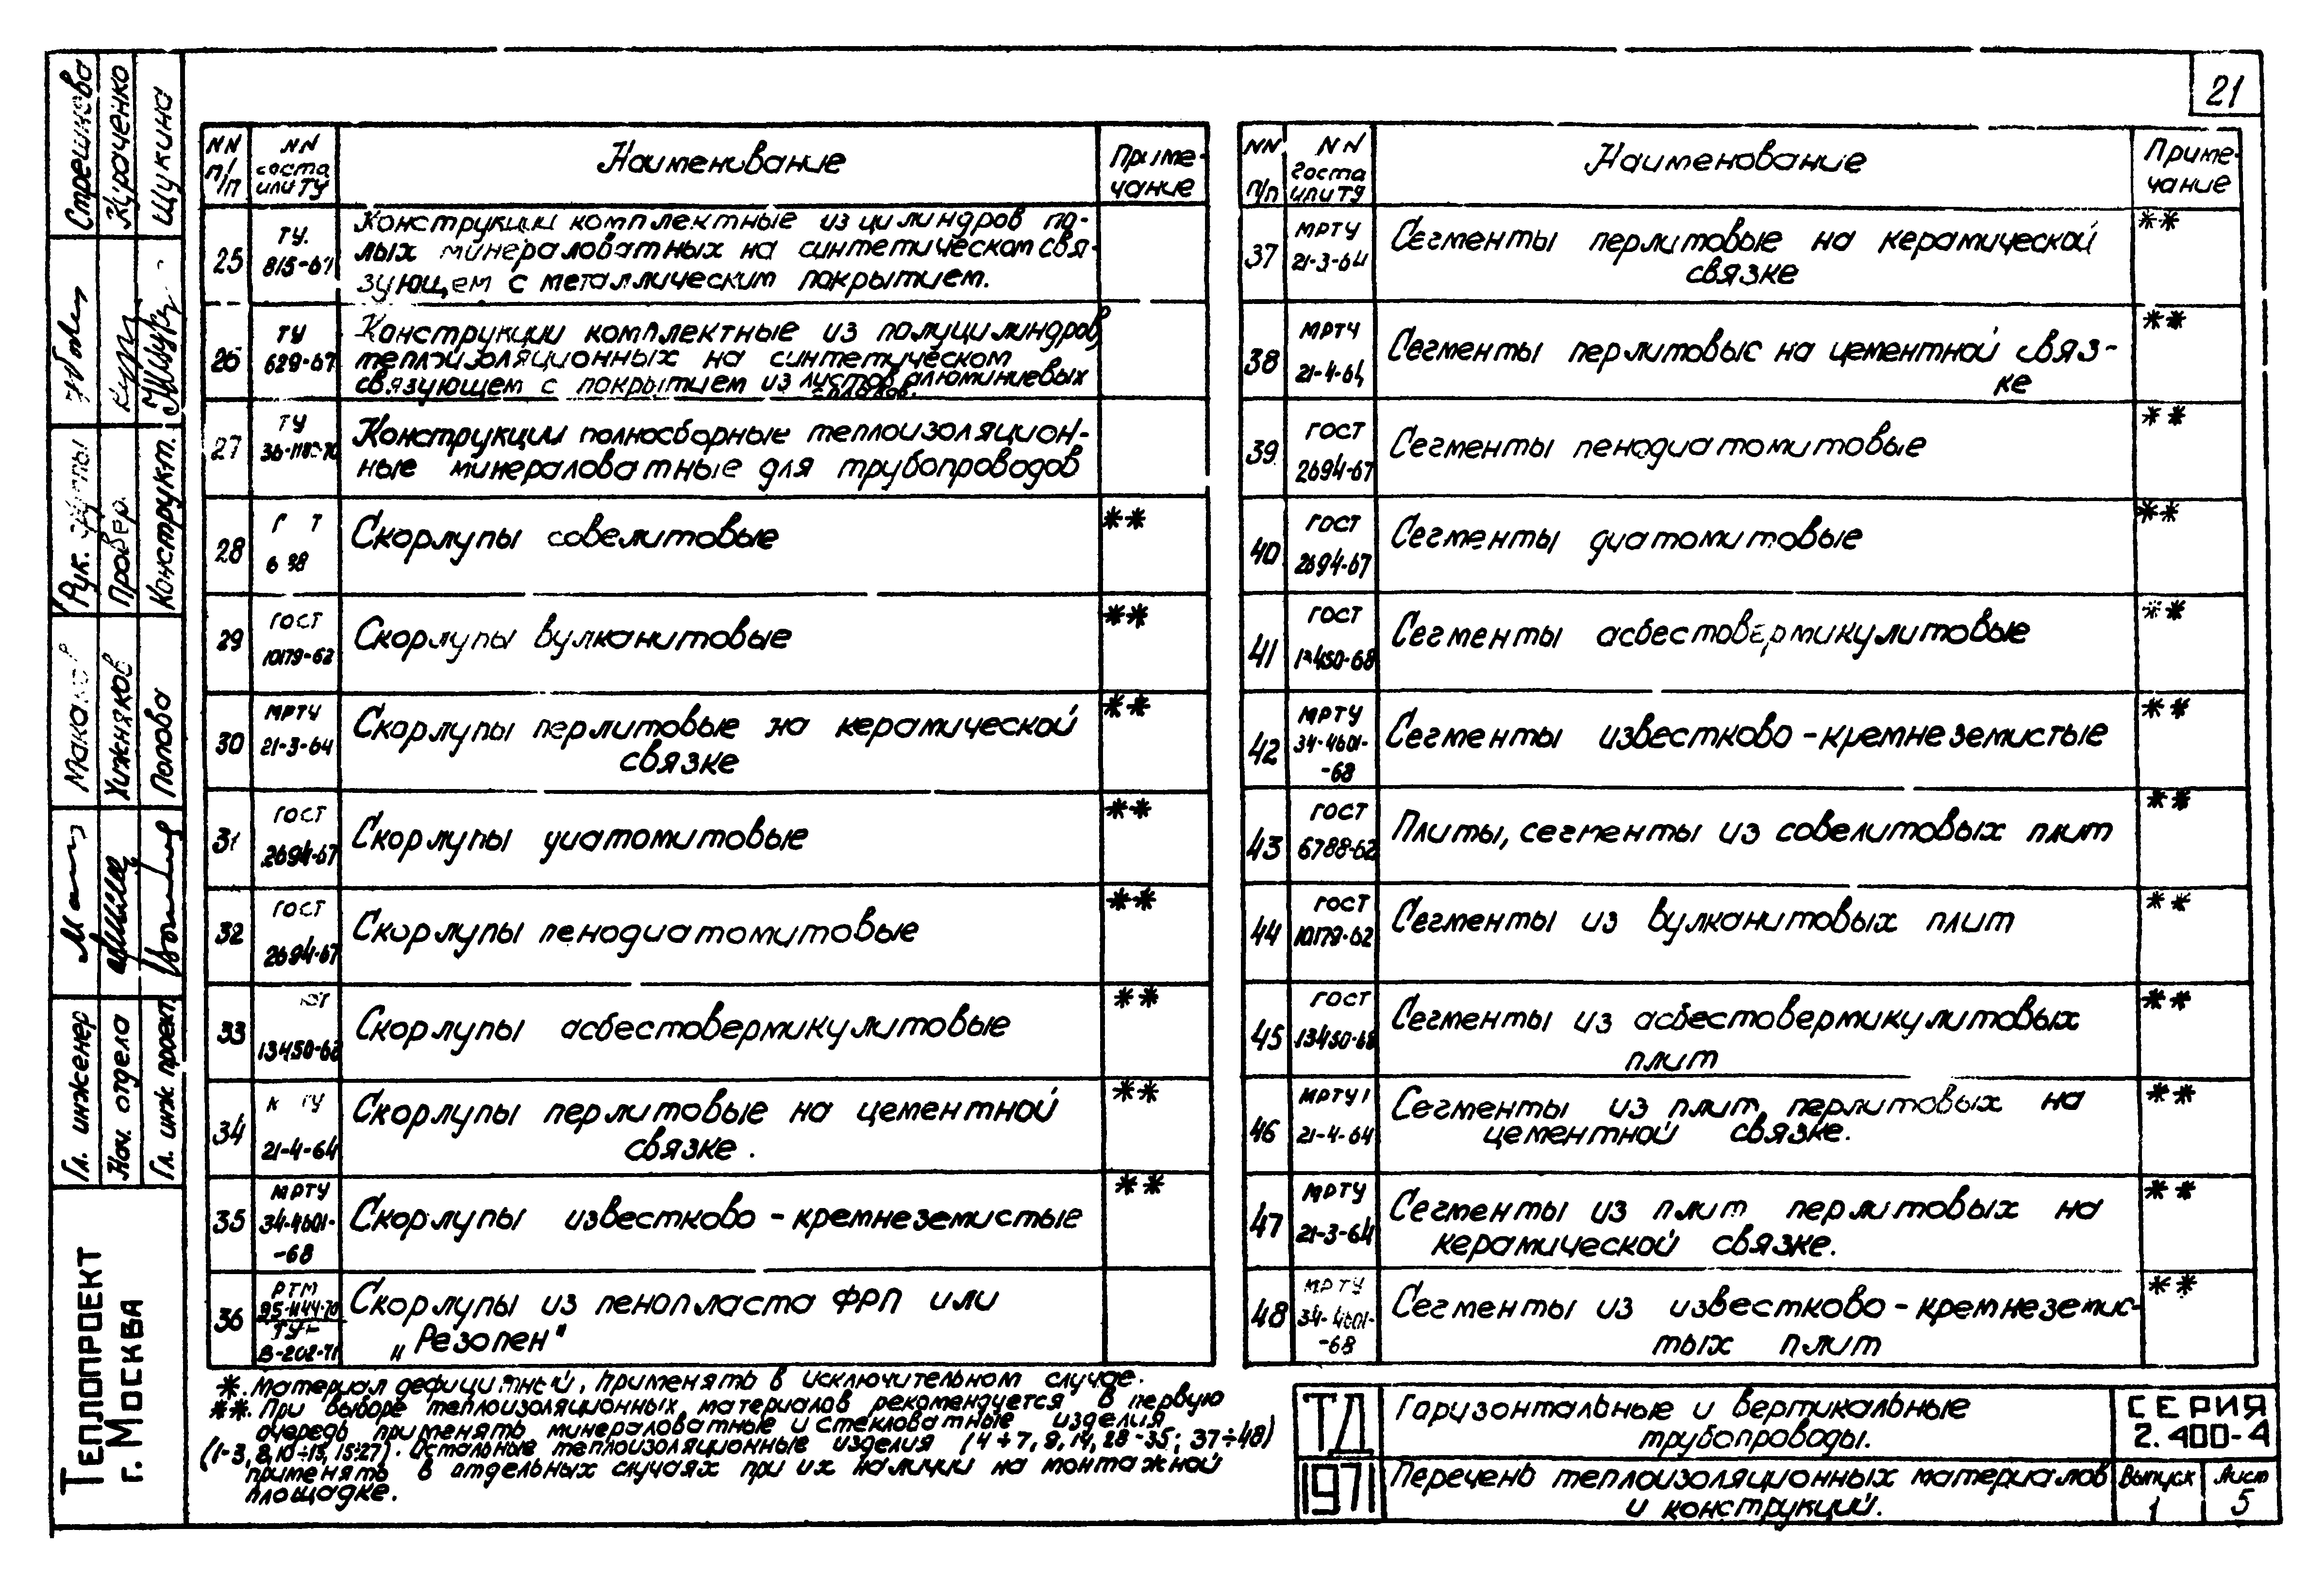 21
NN п/п
NN госта или ТУ
Наименование
Приме-
чание
25
ТУ.
815-67
Конструкции комплектные из цилиндров по-
лых минераловатных на синтетическом свя-
зующем с металлическим покрытием.
26
ТУ
629-67
Конструкции комплектные из полуцилиндров
теплоизоляционных на синтетическом
связующем с покрытием из листов алюминиевых
сплавов.
27
ТУ
Конструкции полносборные теплоизоляцион-
ные минераловатные для трубопроводов
28
Скорлупы совелитовые
**
29
ГОСТ
10179-62
Скорлупы вулканитовые
**
30
МРТУ
21-3-64
Скорлупы перлитовые на керамической
связке
**
31
ГОСТ
2694-67
Скорлупы диатомитовые
**
32
ГОСТ
2694-67
Скорлупы пенодиатомитовые
**
33
13450-68
Скорлупы асбестовермикулитовые
**
34
21-4-64
Скорлупы перлитовые на цементной
связке.
**
35
МРТУ
34-4601-
-68
Скорлупы известково-кремнеземистые
**
36
РТМ
В-202-71
Скорлупы из пенопласта ФРП или
„Резопен"
NN п/п
NN госта или ТУ
Наименование
Приме-
чание
37
МРТУ
21-3-64
Сегменты перлитовые на керамической
связке
**
38
МРТУ
21-4-64
Сегменты перлитовые на цементной связ-
ке
**
39
ГОСТ
2694-67
Сегменты пенодиатомитовые
**
40
ГОСТ
2694-67
Сегменты диатомитовые
**
41
ГОСТ
13450-68
Сегменты асбестовермикулитовые
**
42
МРТУ
34-4601-
-68
Сегменты известково-кремнеземистые
**
43
ГОСТ
6788-62
Плиты, сегменты из совелитовых плит
**
44
ГОСТ
10179-62
Сегменты из вулканитовых плит
**
45
ГОСТ
13450-68
Сегменты из асбестовермикулитовых
плит
**
46
МРТУ
21-4-64
Сегменты из плит перлитовых на
цементной связке.
**
47
МРТУ
21-3-64
Сегменты из плит перлитовых на
керамической связке.
**
48
МРТУ
34-4601-
-68
Сегменты из известково-кремнеземис-
тых плит
**
*. Материал дефицитный, применять в исключительном случае.
**. При выборе теплоизоляционных материалов рекомендуется в первую
очередь применять минераловатные и стекловатные изделия
(1-3, 8, 10÷13, 15÷27). Остальные теплоизоляционные изделия (4÷7, 9, 14, 28-35; 37÷48)
применять в отдельных случаях при их наличии на монтажной
площадке.
ТД
1971
Горизонтальные и вертикальные
трубопроводы.
Перечень теплоизоляционных материалов
и конструкций.
СЕРИЯ
2.400-4
Выпуск
1
Лист
5
Теплопроект
г. Москва
Гл. инженер
Нач. отдела
Гл. инж. проект.
Макаров
Хижняков
Попова
Рук. группы
Провер.
Конструкт.
Стрешнева
Кураченко
Щукина